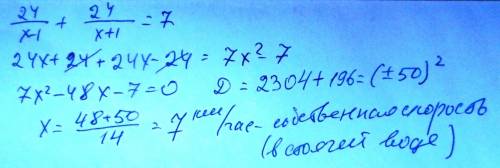 24/x-1 + 24/x+1 = 7
24x+24+24x-24 = 7x²-7
7x²-48x-7=0 D = 2304+196=(±50)²
x = 48+50/14 = 7 км/час - собственная скорость
(в стоячей воде)